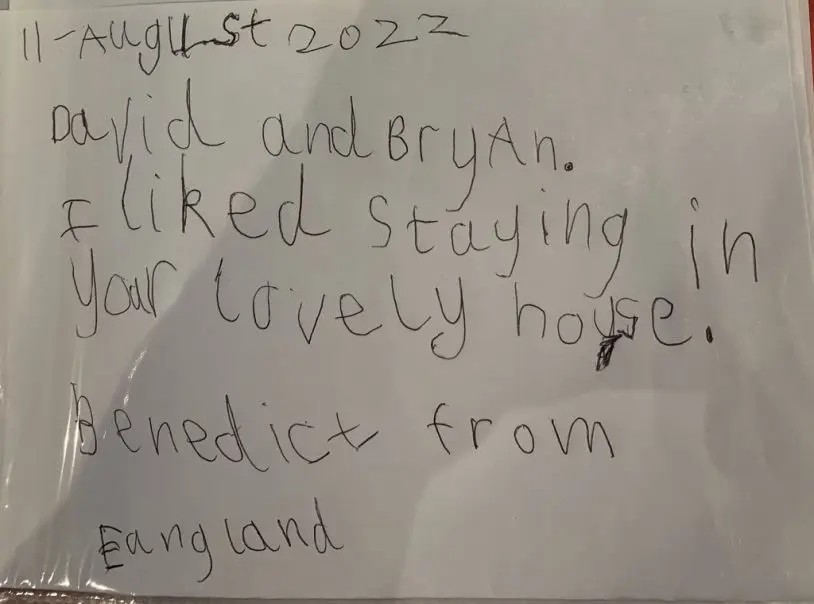 11-AUgUSt 2022
David and BryAn.
I liked staying in
your lovely house.
Benedict from
Eangland